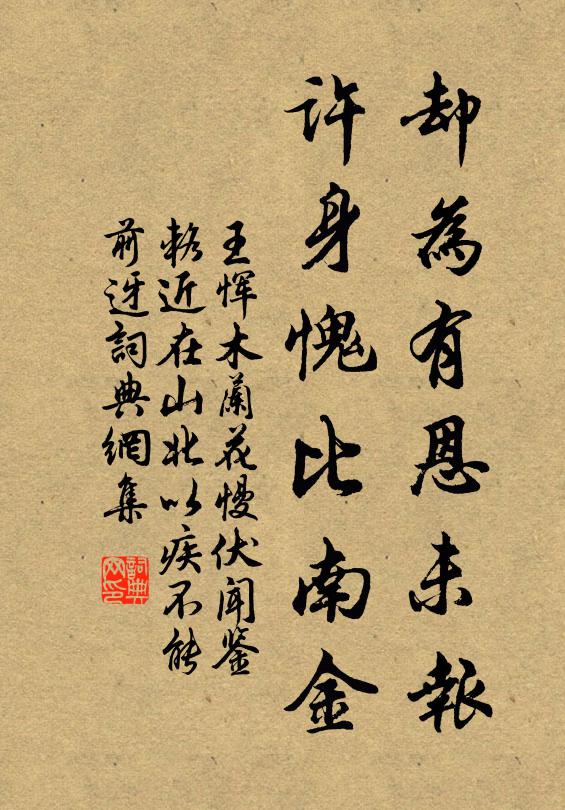 却為有恩未報
許身愧比南金
王惲木蘭花慢伏聞鑒
輅近在山北以疾不能
前迓詞典網集
詞典
网印